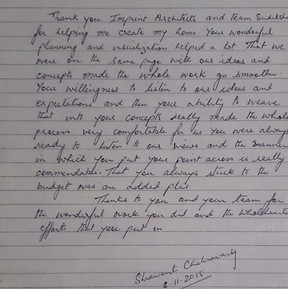 Thank you Imprint Architects and team
for helping me create my home Your wonderful
planning and visualization helped a lot That we
were on the same page with our ideas and
concepts made the whole work go smooth
Your willingness to listen to our ideas and
expectations and then your ability to weave
that into your concepts really made the whole
process very comfortable for us You were always
ready to listen to our views and the manner
in which you put your point across is really
commendable That you always stuck to the
budget was an added plus
Thanks to you and your team for
the wonderful work you did and the wholehearted
efforts that you put in
Shravanti Chakravarty
6.11.2015